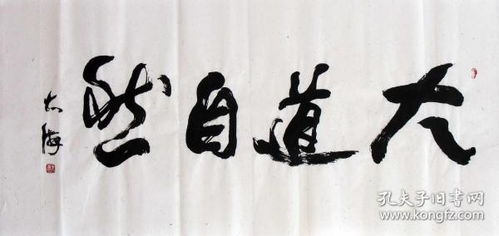 大道自然
大海
孔夫子旧书网
www.kongfz.com